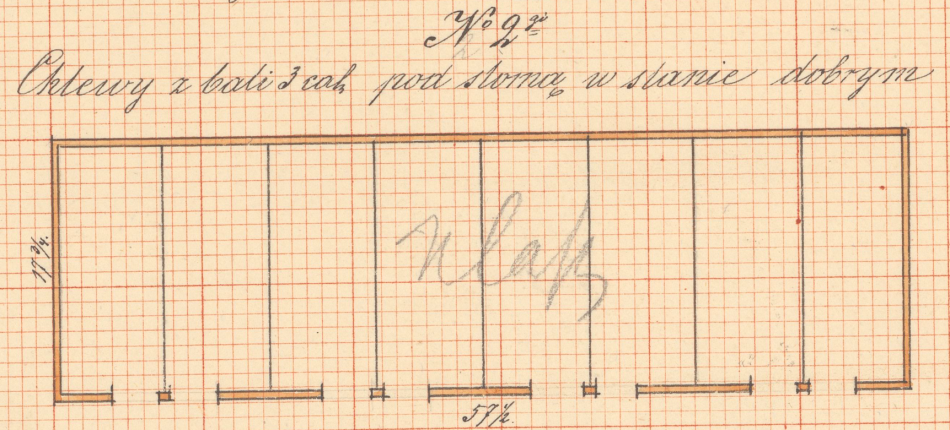 No 2gi
Chlewy z bali 3 cal. pod słomą w stanie dobrym
17 3/4.
57 1/2.